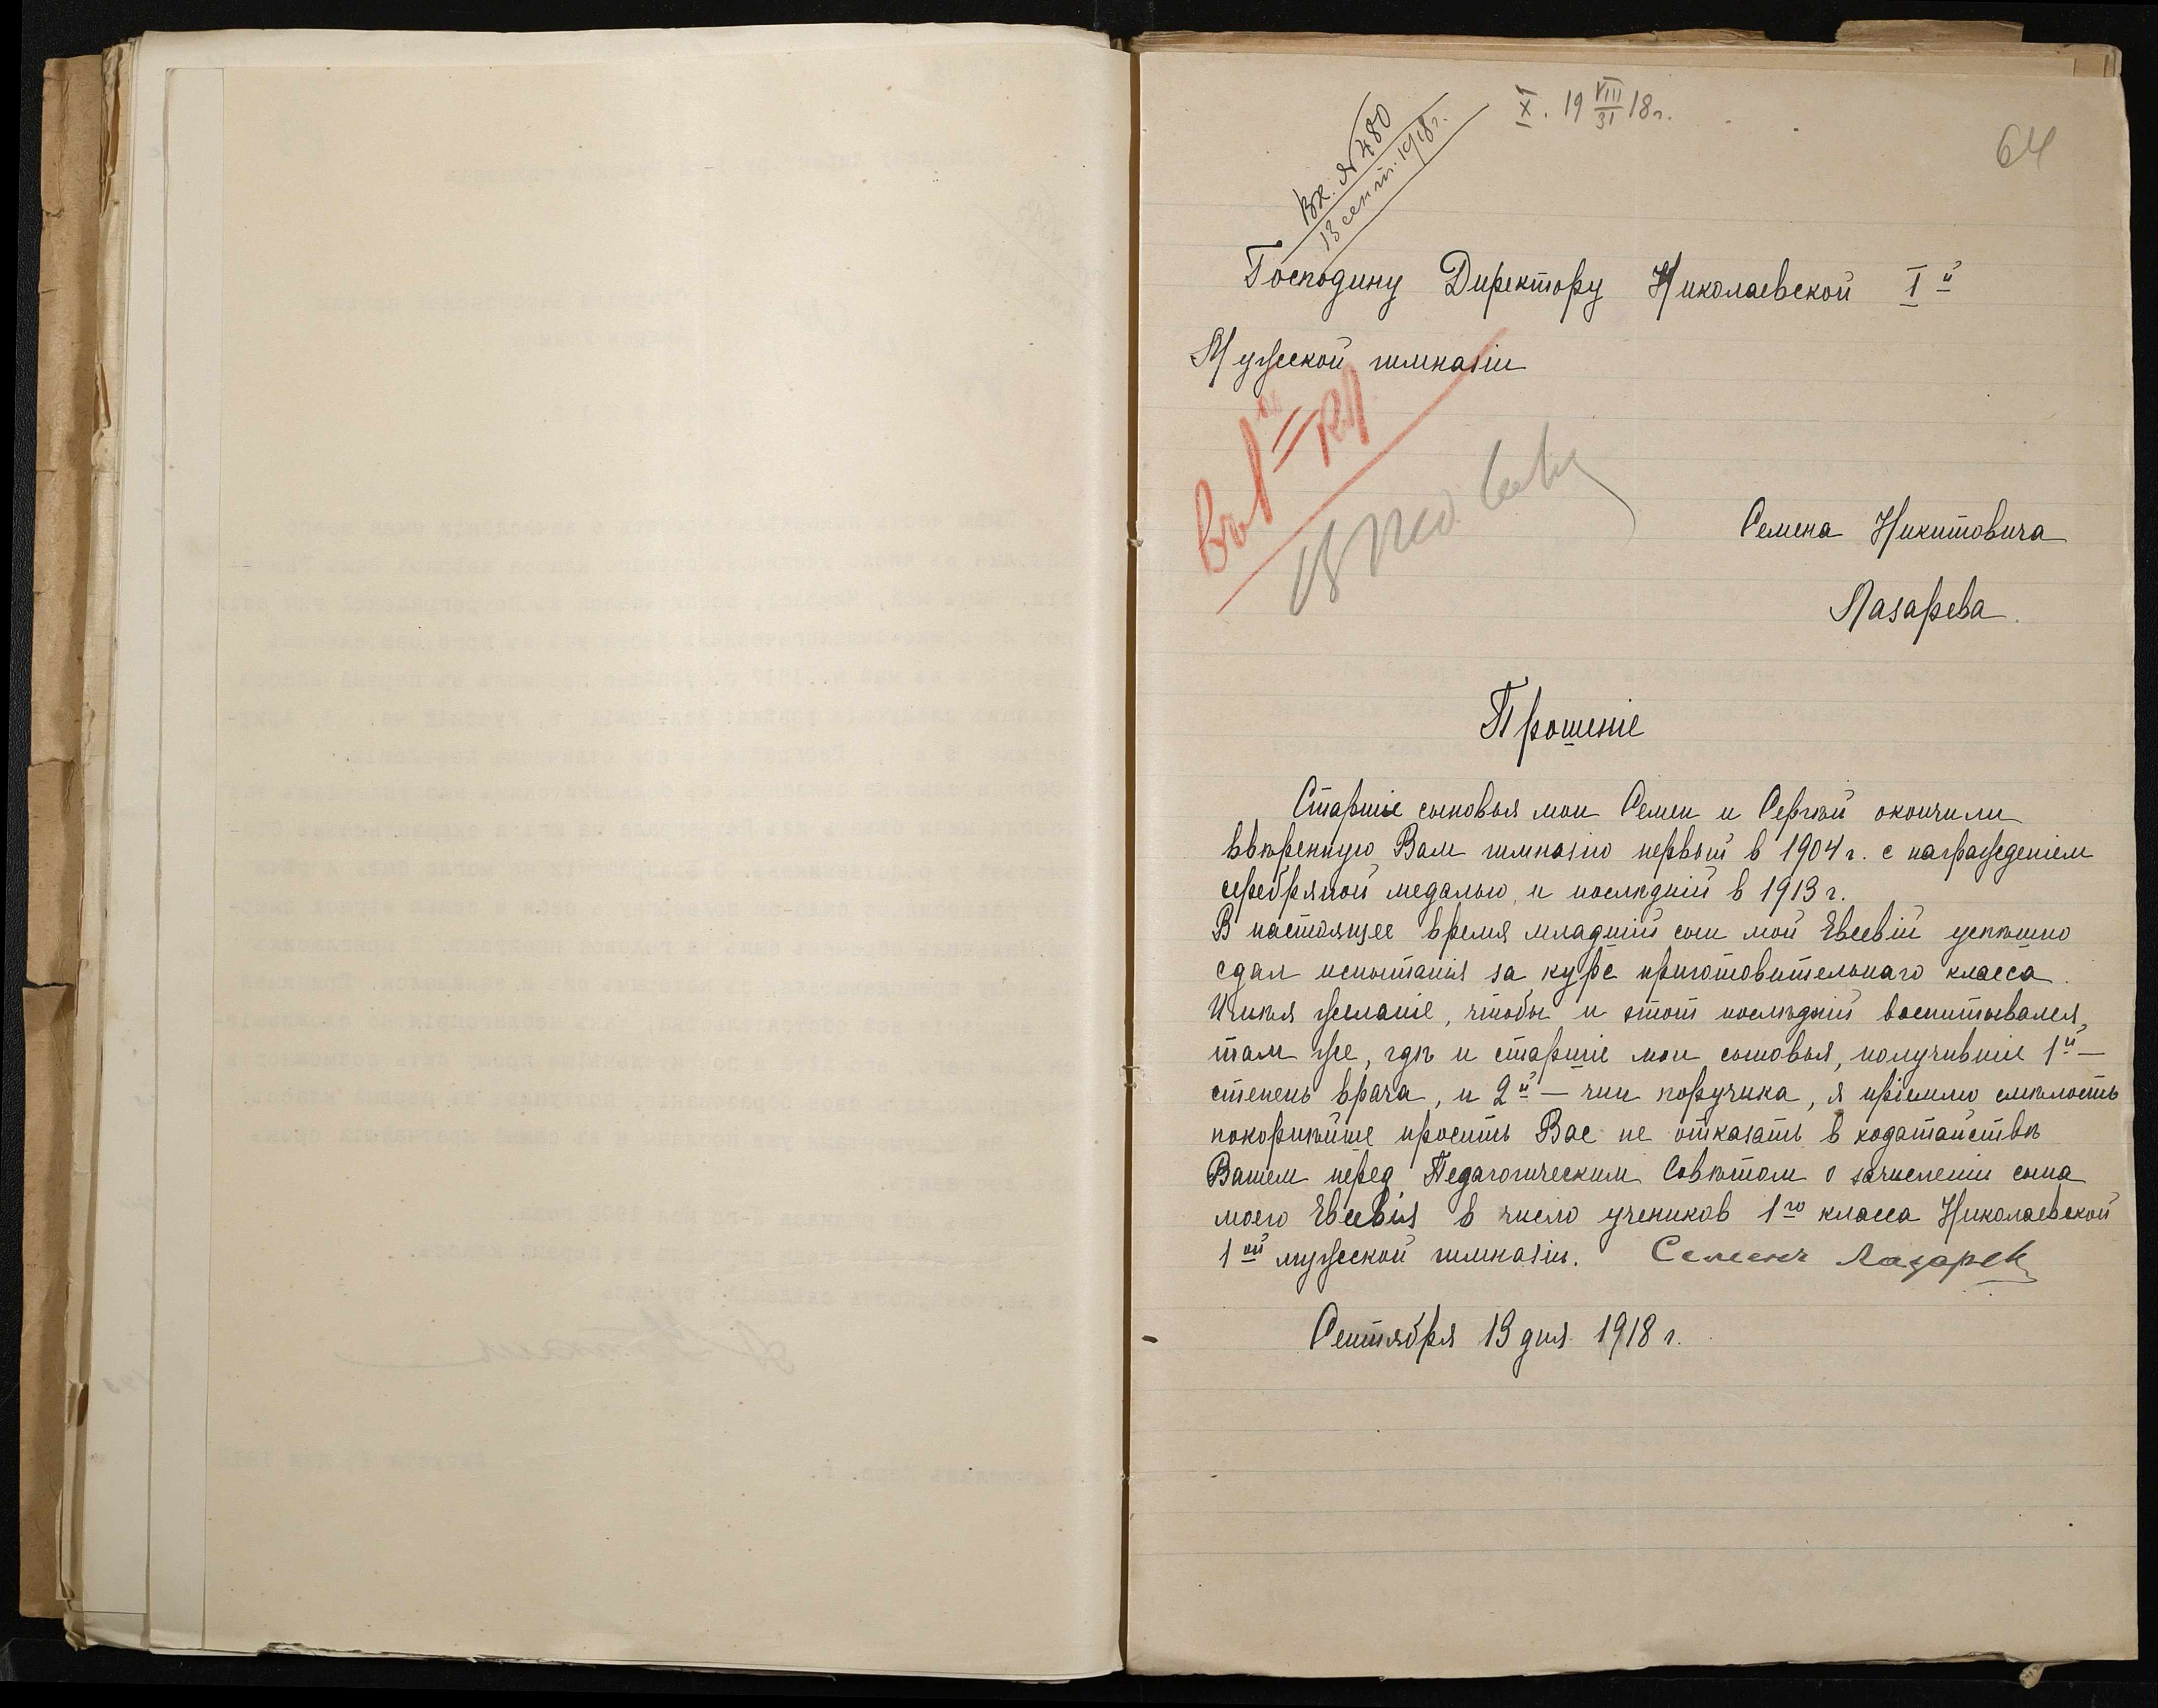 XI. 19 VIII/31 18 г.
64
Вх. № 480
13 сент. 1918 г.
Господину Директору Николаевской I й
Мужской гимназіи
Семена Никитовича
Лазарева.
Прошеніе
Старшіе сыновья мои Семен и Сергѣй окончили
ввѣренную Вам гимназію первый в 1904 г. с награжденіем
серебряной медалью, и послѣдній в 1913 г.
В настоящее время младшій сын мой Евсевій успѣшно
сдал испытанія за курс приготовительнаго класса.
Имѣя желаніе, чтобы и этот послѣдній воспитывался,
там же, гдѣ и старшіе мои сыновья, получившіе 1й —
степень врача, и 2й — чин поручика, я пріемлю смѣлость
покорнѣйше просить Вас не отказать в ходатайствѣ
Вашем перед Педагогическим Совѣтом о зачисленіи сына
моего Евсевія в число учеников 1го класса Николаевской
1ой мужской гимназіи. Семенъ Лазарев
Сентября 13 дня 1918 г.